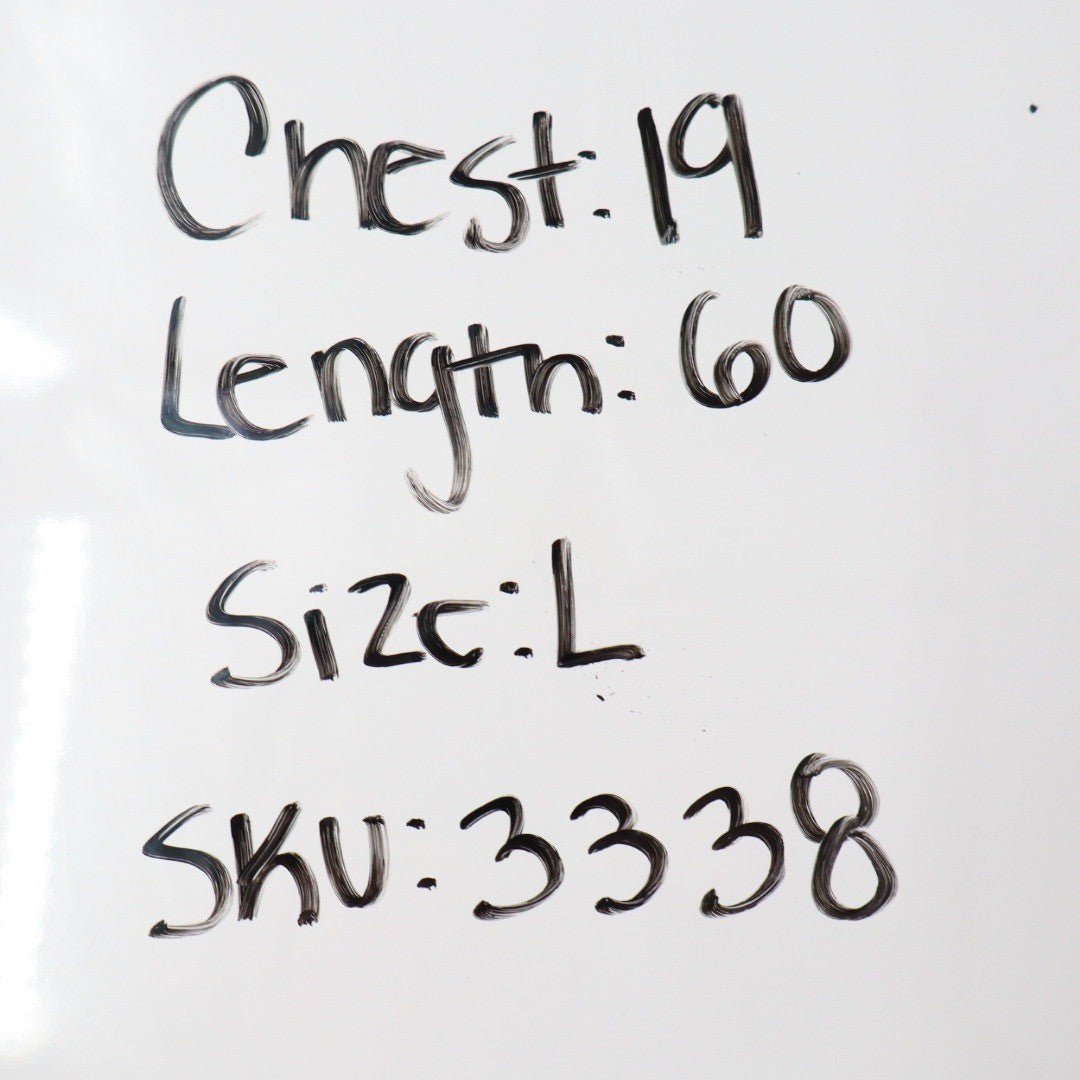 Chest: 19
Length: 60
Size: L
SKU: 3338